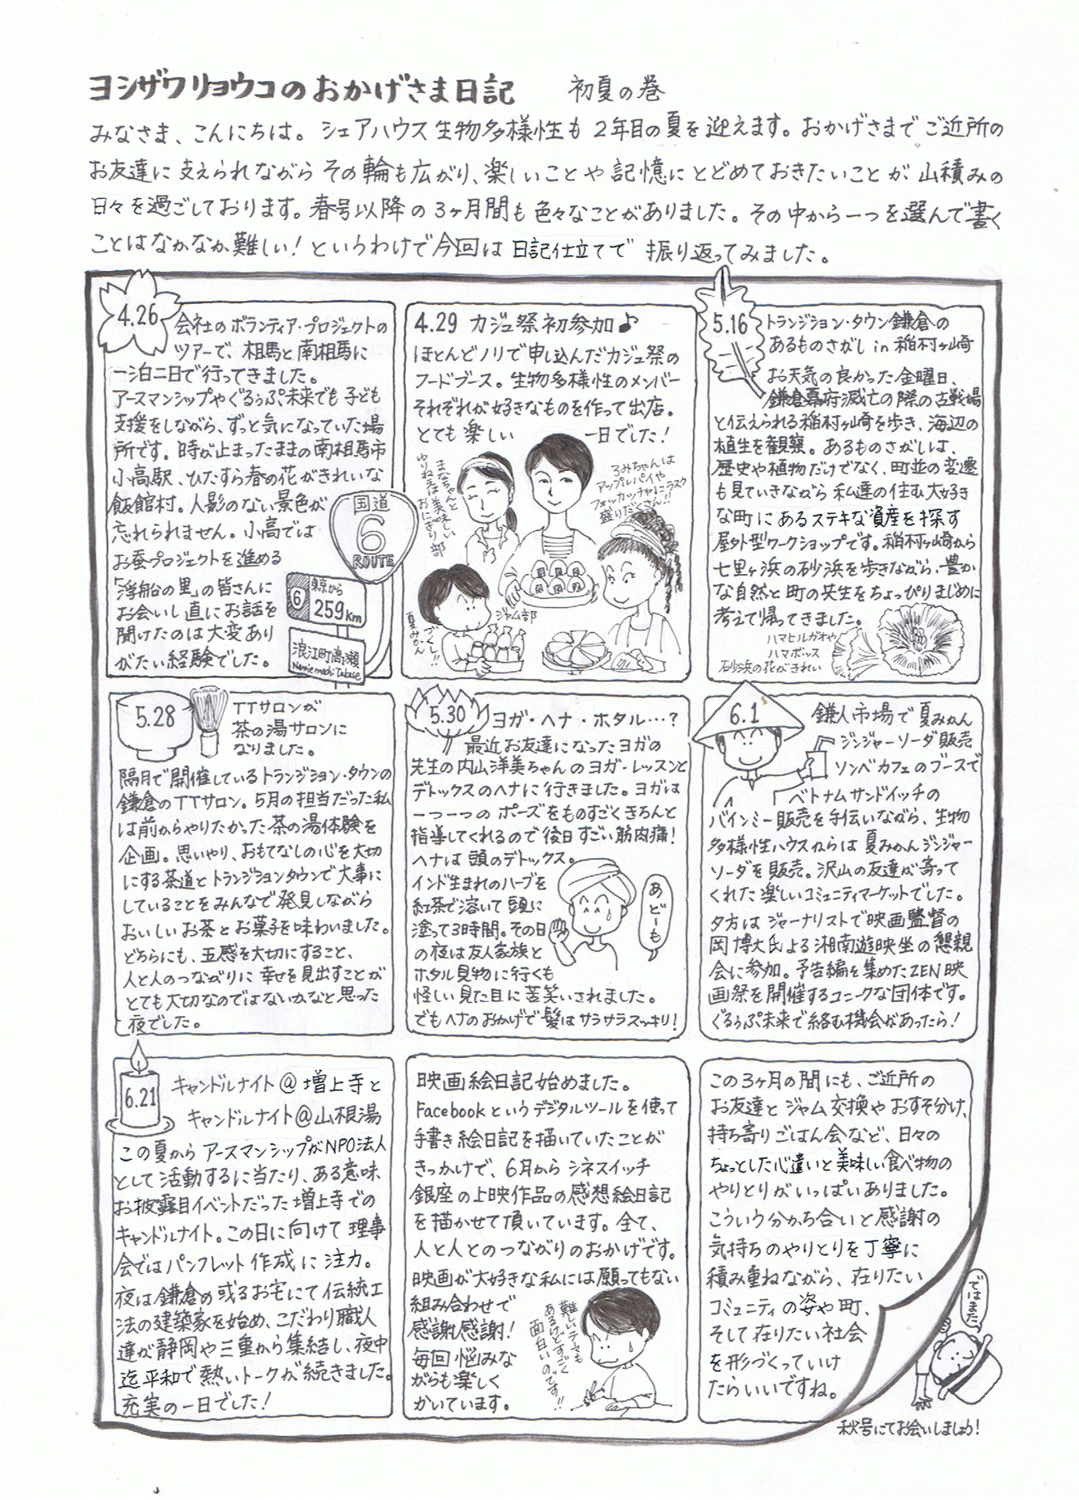 ヨシザワリョウコのおかげさま日記 初夏の巻
みなさま、こんにちは。シェアハウス生物多様性も2年目の夏を迎えます。おかげさまでご近所の
お友達に支えられながらその輪も広がり、楽しいことや記憶にとどめておきたいことが山積みの
日々を過ごしております。春号以降の3ヶ月間も色々なことがありました。その中から一つを選んで書く
ことはなかなか難しい！というわけで今回は日記仕立てで振り返ってみました。
4.26 会社のボランティア・プロジェクトの
ツアーで、相馬と南相馬に
一泊二日で行ってきました。
アースマンシップやぐるぅぷ未来でも子ども
支援をしながら、ずっと気になっていた場
所です。時が止まったままの南相馬市
小高駅、ひたすら春の花がきれいな
飯館村。人影のない景色が
忘れられません。小高では
お蚕プロジェクトを進める
「浮船の里」の皆さんに
お会いし直にお話を
聞けたのは大変あり
がたい経験でした。
国道
6
ROUTE
6 東京から
259km
浪江町高瀬
Namiemachi Takase
4.29 カジュ祭初参加♪
ほとんどノリで申し込んだカジュ祭の
フードブース。生物多様性のメンバー
それぞれが好きなものを作って出店。
とても楽しい一日でした！
まなちゃんと
ゆりねえは美味しい
おにぎり部
るみちゃんは
アップルパイや
フォッカッチャにラスク
盛りだくさん!!
ジャム部
夏みかん
づくし!!
5.16 トランジション・タウン鎌倉の
あるものさがし in 稲村ヶ崎
お天気の良かった金曜日、
鎌倉幕府滅亡の際の古戦場
と伝えられる稲村ヶ崎を歩き、海辺の
植生を観察。あるものさがしは、
歴史や植物だけでなく、町並の変遷
も見ていきながら私達の住む大好き
な町にあるステキな資産を探す
屋外型ワークショップです。稲村ヶ崎から
七里ヶ浜の砂浜を歩きながら、豊か
な自然と町の共生をちょっぴりまじめに
考えて帰ってきました。
ハマヒルガオや
ハマボッス
砂浜の花がきれい
5.28 TTサロンが
茶の湯サロンに
なりました。
隔月で開催しているトランジション・タウンの
鎌倉のTTサロン。5月の担当だった私
は前からやりたかった茶の湯体験を
企画。思いやり、おもてなしの心を大切
にする茶道とトランジションタウンで大事に
していることをみんなで発見しながら
おいしいお茶とお菓子を味わいました。
どちらにも、五感を大切にすること、
人と人のつながりに幸せを見出すことが
とても大切なのではないかなと思った
夜でした。
5.30 ヨガ・ヘナ・ホタル…？
最近お友達になったヨガの
先生の内山洋美ちゃんのヨガ・レッスンと
デトックスのヘナに行きました。ヨガは
一つ一つのポーズをものすごくきちんと
指導してくれるので後日すごい筋肉痛！
ヘナは頭のデトックス。
インド生まれのハーブを
紅茶で溶いて頭に
塗って3時間。その日
の夜は友人家族と
ホタル見物に行くも
怪しい見た目に苦笑いされました。
でもヘナのおかげで髪はサラサラスッキリ！
あどーも
6.1 鎌人市場で夏みかん
ジンジャーソーダ販売
ソンベカフェのブースで
ベトナムサンドイッチの
バインミー販売を手伝いながら、生物
多様性ハウスからは夏みかんジンジャー
ソーダを販売。沢山の友達が寄って
くれた楽しいコミュニティマーケットでした。
夕方はジャーナリストで映画監督の
岡博大氏よる湘南遊映坐の懇親
会に参加。予告編を集めたZEN映
画祭を開催するユニークな団体です。
ぐるぅぷ未来で絡む機会があったら！
6.21 キャンドルナイト＠増上寺と
キャンドルナイト＠山根湯
この夏からアースマンシップがNPO法人
として活動するに当たり、ある意味
お披露目イベントだった増上寺での
キャンドルナイト。この日に向けて理事
会ではパンフレット作成に注力。
夜は鎌倉の或るお宅にて伝統工
法の建築家を始め、こだわり職人
達が静岡や三重から集結し、夜中
迄平和で熱いトークが続きました。
充実の一日でした！
映画絵日記始めました。
Facebookというデジタルツールを使って
手書き絵日記を描いていたことが
きっかけで、6月からシネスイッチ
銀座の上映作品の感想絵日記
を描かせて頂いています。全て、
人と人とのつながりのおかげです。
映画が大好きな私には願ってもない
組み合わせで
感謝感謝！
毎回悩みな
がらも楽しく
かいています。
難しいテーマも
あるけどすごく
面白いのです!!
この3ヶ月の間にも、ご近所の
お友達とジャム交換やおすそ分け、
持ち寄りごはん会など、日々の
ちょっとした心遣いと美味しい食べ物の
やりとりがいっぱいありました。
こういう分かち合いと感謝の
気持ちのやりとりを丁寧に
積み重ねながら、在りたい
コミュニティの姿や町、
そして在りたい社会
を形づくっていけ
たらいいですね。
ではまた
秋号にてお会いしましょう！